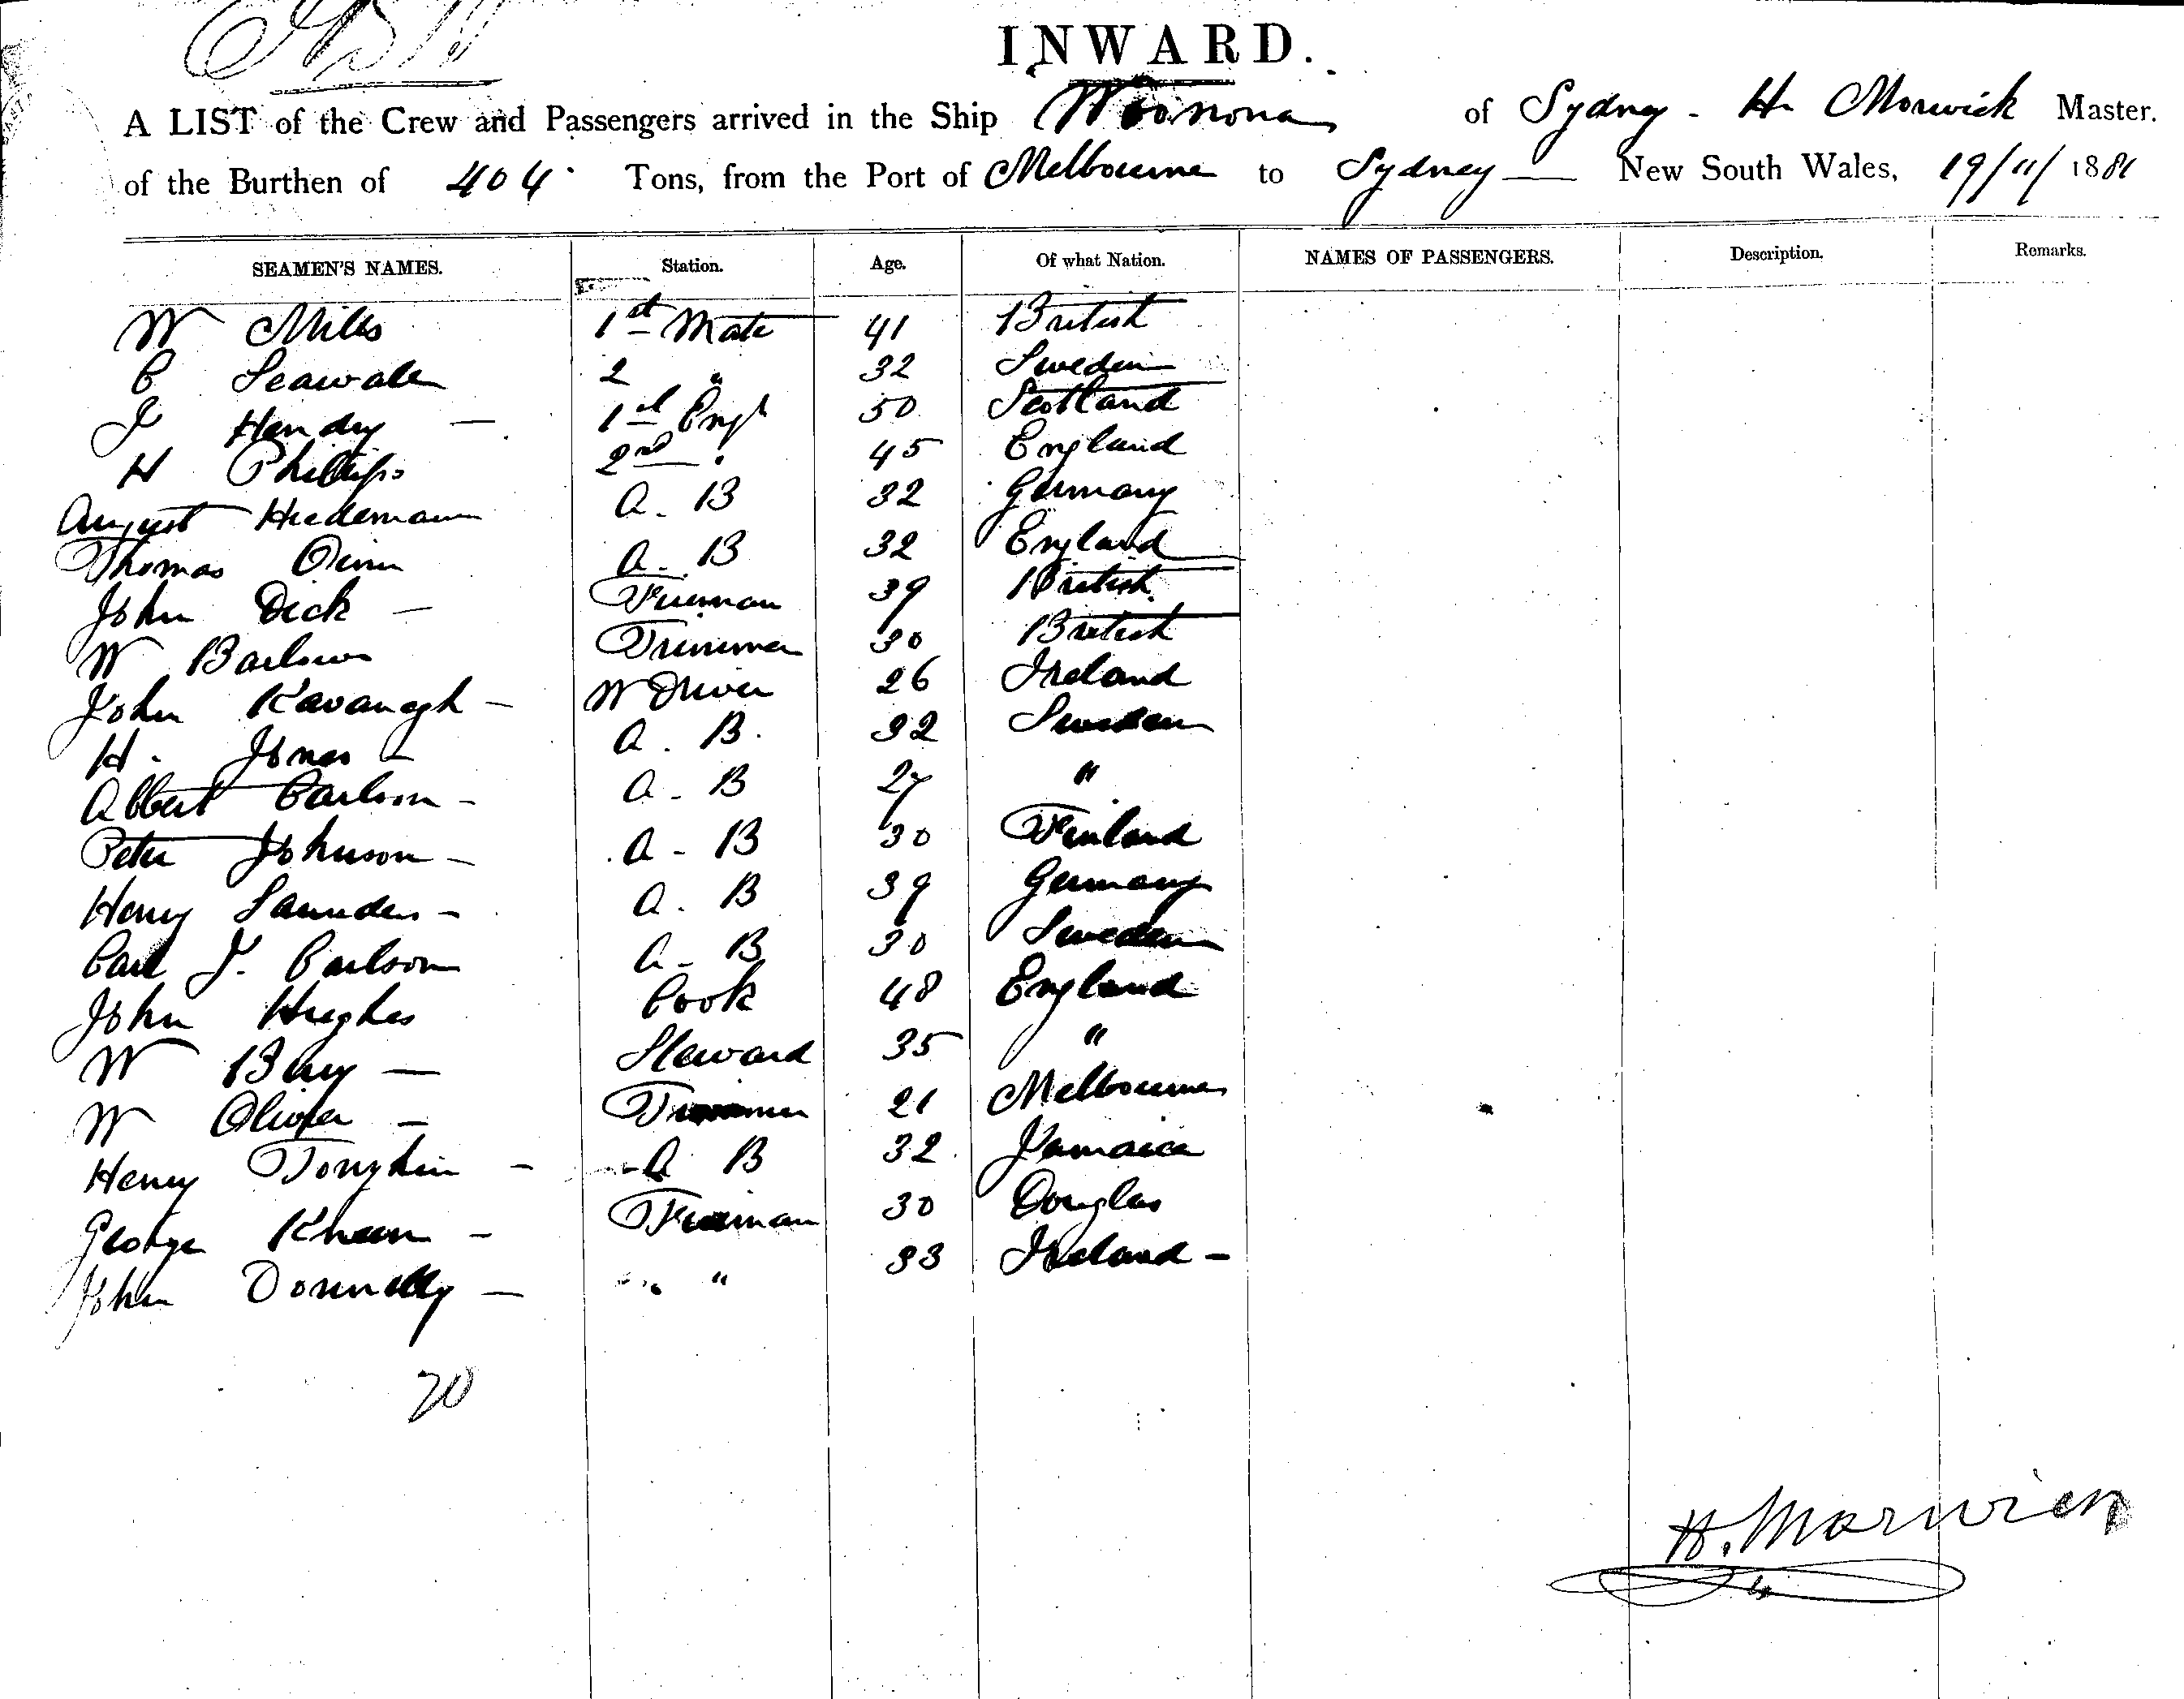 INWARD.
A LIST of the Crew and Passengers arrived in the Ship Woonona of Sydney - H Morwick Master.
of the Burthen of 404 Tons, from the Port of Melbourne to Sydney — New South Wales, 19/11/1881
SEAMEN'S NAMES. Station. Age. Of what Nation. NAMES OF PASSENGERS. Description. Remarks.
W Mills 1st Mate 41 British
C 2 " 32 Sweden
J Hendry — 1st Engr 50 Scotland
H Phillips 2nd — " 45 England
August Hiedemann A. B 32 Germany
Thomas A. B 32 England
John Dick — Fireman 39 British
W Barlow Trimmer 30 British
John Kavanagh — W Driver 26 Ireland
H. Jones — A. B. 32 Sweden
Albert Carlson — A. B 27 "
Peter Johnson — A - B 30 Finland
Henry Saunders — A. B 39 Germany
Carl J. Carlson A - B 30 Sweden
John Hughes Cook 48 England
W — Steward 35 "
W Oliver — Trimmer 21 Melbourne
Henry A B 32 Jamaica
George Kneen — Fireman 30 Douglas
John Donnelly — " " 33 Ireland —
20
H. Morwick